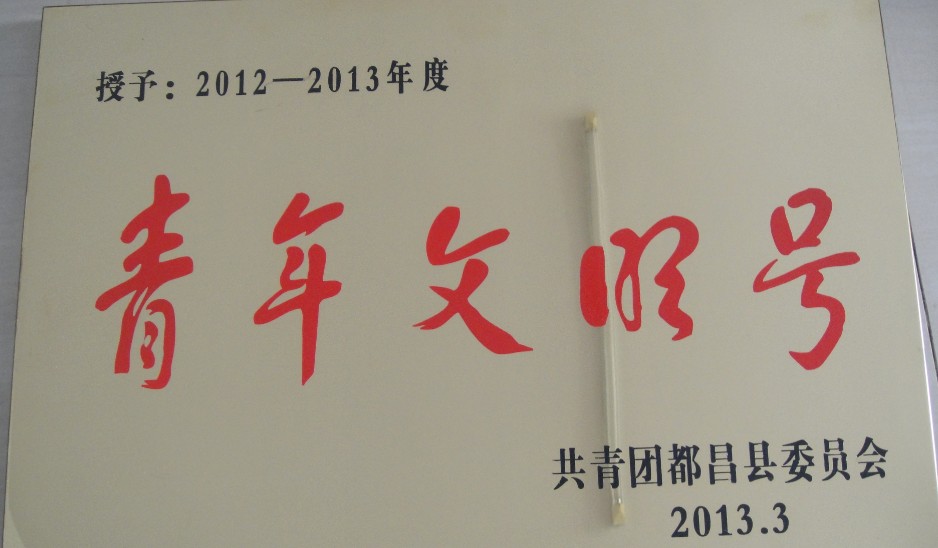 授予：2012—2013年度
青年文明号
共青团都昌县委员会
2013.3